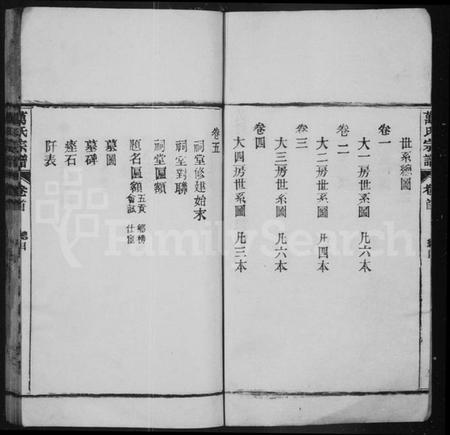 萬氏宗譜
卷首
總目
世系總圖
卷一
大一房世系圖 凡六本
卷二
大二房世系圖 凡四本
卷三
大三房世系圖 凡六本
卷四
大四房世系圖 凡三本
卷五
祠堂修建始末
祠堂對聯
祠堂匾額
題名匾額 五貢 鄉榜 會試 仕宦
墓圖
墓碑
瘞石
阡表
萬氏宗譜
卷首
總目
FamilySearch